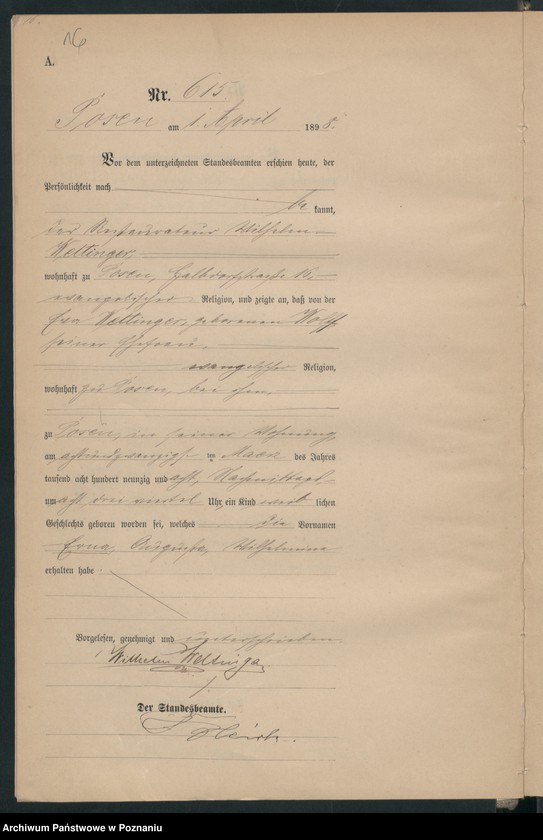 16
A.
Nr. 615.
Posen am 1. April 1898.
Vor dem unterzeichneten Standesbeamten erschien heute, der
Persönlichkeit nach
be kannt,
der Restaurateur Wilhelm
Weltinger,
wohnhaft zu Posen, Halbdorfstraße 15,
evangelischer Religion, und zeigte an, daß von der
Eva Weltinger, geborenen Wolff
seiner Ehefrau,
evangelischer Religion,
wohnhaft zu Posen, bei ihm,
zu Posen, in seiner Wohnung,
am achtundzwanzigsten März des Jahres
tausend acht hundert neunzig und acht, Nachmittags
um acht drei viertel Uhr, ein Kind weib lichen
Geschlechts geboren worden sei, welches die Vornamen
Erna, Auguste, Wilhelmine
erhalten habe.
Vorgelesen, genehmigt und unterschrieben.
Wilhelm Weltinger.
Der Standesbeamte.
Archiwum Państwowe w Poznaniu